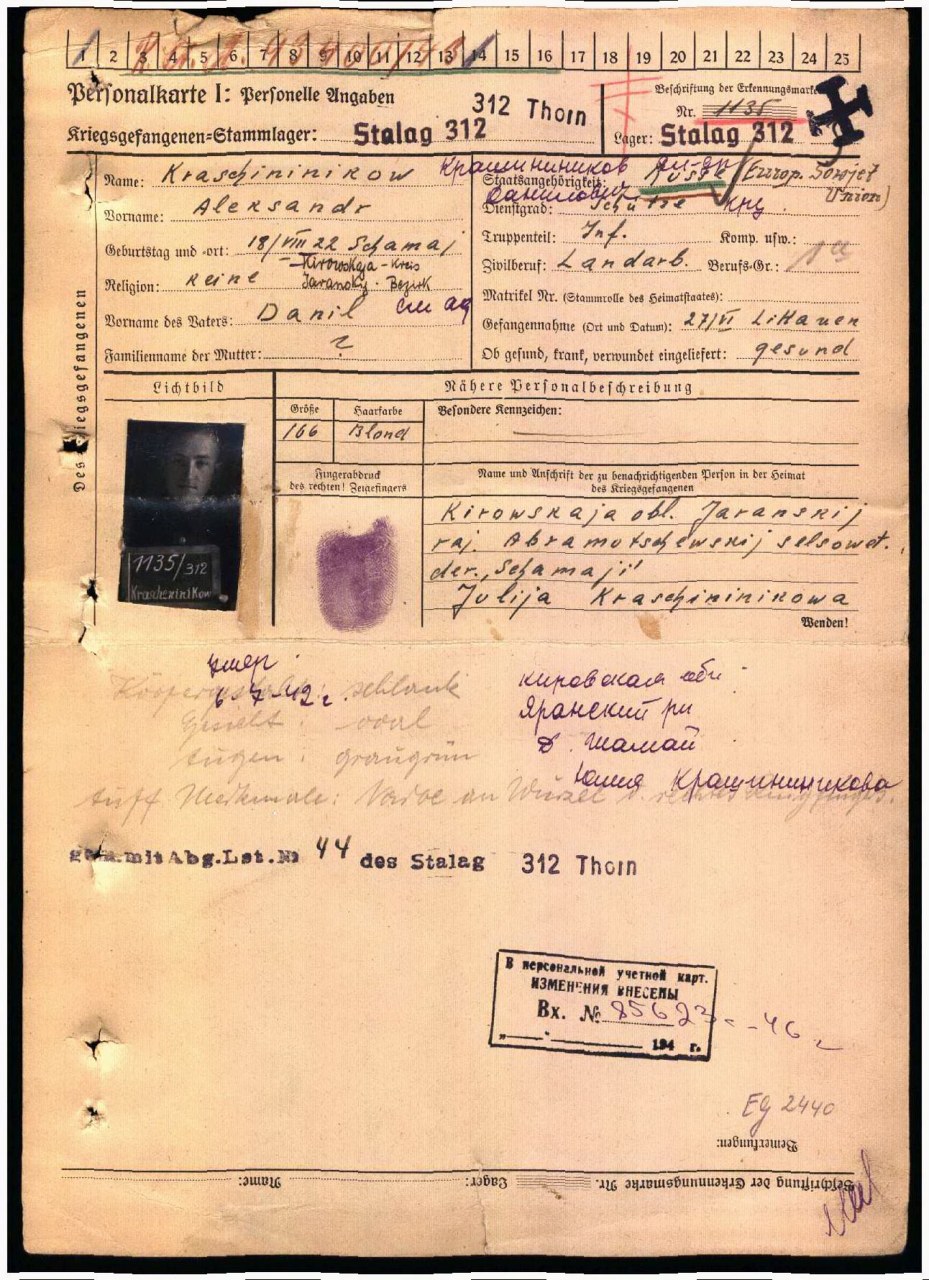 1 2 3 4 5 6 7 8 9 10 11 12 13 14 15 16 17 18 19 20 21 22 23 24 25
Personalkarte I: Personelle Angaben
312 Thorn
Beschriftung der Erkennungsmarke
Nr. 1135
Kriegsgefangenen-Stammlager: Stalag 312
Lager: Stalag 312
Des Kriegsgefangenen
Name: Kraschininikow Крашиниников
Vorname: Aleksandr
Geburtstag und -ort: 18/VIII 22 Schamaj
Kirowskaja - Kreis
Jaranskij - Bezirk
Religion: keine
Vorname des Vaters: Danil
Familienname der Mutter: ?
Staatsangehörigkeit: Russe (Europ. Sowjet Union)
Данилович
Dienstgrad: Schütze
Truppenteil: Inf. Komp. usw.:
Zivilberuf: Landarb. Berufs-Gr.: 1a
Matrikel Nr. (Stammrolle des Heimatstaates):
Gefangennahme (Ort und Datum): 27/VI Litauen
Ob gesund, krank, verwundet eingeliefert: gesund
Lichtbild
Nähere Personalbeschreibung
Größe Haarfarbe Besondere Kennzeichen:
166 Blond
Fingerabdruck
des rechten! Zeigefingers
Name und Anschrift der zu benachrichtigenden Person in der Heimat
des Kriegsgefangenen
1135/312
Kraschenikow
Kirowskaja obl. Jaranskij
raj. Abramotschewskij selsowet.
der. „Schamaji"
Julija Kraschininikowa
Wenden!
умер
6-7-42 г.
Körpergestalt: schlank
Gesicht: oval
Augen: graugrün
Auff. Merkmale: Narbe an Wurzel
кировская обл
Яранский рн
д. Шамай
Юлия Крашининикова
gem. mit Abg.Lst.№ 44 des Stalag 312 Thorn
В персональной учетной карт.
ИЗМЕНЕНИЯ ВНЕСЕНЫ
Вх. № 85623 -46
194 г.
Eg 2440
Bemerkungen:
Beschriftung der Erkennungsmarke Nr. Lager: Name: